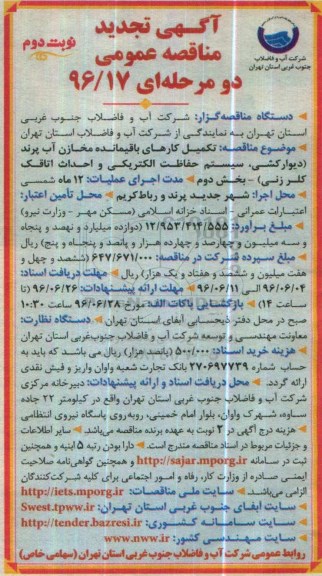 آگهی تجدید
مناقصه عمومی
دو مرحله‌ای ۹۶/۱۷
نوبت دوم
شرکت آب و فاضلاب
جنوب غربی استان تهران
دستگاه مناقصه‌گزار: شرکت آب و فاضلاب جنوب غربی
استان تهران به نمایندگی از شرکت آب و فاضلاب استان تهران
موضوع مناقصه: تکمیل کارهای باقیمانده مخازن آب پرند
(دیوارکشی، سیستم حفاظت الکتریکی و احداث اتاقک
کلرزنی) - بخش دوم مدت اجرای عملیات: ۱۲ ماه شمسی
محل اجرا: شهر جدید پرند و رباط‌کریم محل تأمین اعتبار:
اعتبارات عمرانی - اسناد خزانه اسلامی (مسکن مهر - وزارت نیرو)
مبلغ برآورد: ۱۲/۹۵۳/۴۱۴/۵۵۵ (دوازده میلیارد و نهصد و پنجاه
و سه میلیون و چهارصد و چهارده هزار و پانصد و پنجاه و پنج) ریال
مبلغ سپرده شرکت در مناقصه: ۶۴۷/۶۷۱/۰۰۰ (ششصد و چهل و
هفت میلیون و ششصد و هفتاد و یک هزار) ریال مهلت دریافت اسناد:
۹۶/۰۶/۰۴ الی ۹۶/۰۶/۱۱ مهلت ارائه پیشنهادات: ۹۶/۰۶/۲۶ (تا
ساعت ۱۴) بازگشایی پاکات الف: مورخ ۹۶/۰۶/۲۸ ساعت ۱۰:۳۰
صبح در محل دفتر ذیحسابی آبفای استان تهران دستگاه نظارت:
معاونت مهندسی و توسعه شرکت آب و فاضلاب جنوب‌غربی استان تهران
هزینه خرید اسناد: ۵۰۰/۰۰۰ (پانصد هزار) ریال می باشد که باید به
حساب شماره ۲۷۰۶۹۷۷۳۹ بانک تجارت شعبه واوان واریز و فیش نقدی
ارائه گردد. محل دریافت اسناد و ارائه پیشنهادات: دبیرخانه مرکزی
شرکت آب و فاضلاب جنوب غربی استان تهران واقع در کیلومتر ۲۲ جاده
ساوه، شهرک واوان، بلوار امام خمینی، روبه‌روی پاسگاه نیروی انتظامی
هزینه درج آگهی در ۲ نوبت به عهده برنده مناقصه می‌باشد. سایر اطلاعات
و جزئیات مربوط در اسناد مناقصه مندرج است. دارا بودن رتبه ۵ ابنیه و همچنین
ثبت در سامانه http://sajar.mporg.ir و همچنین گواهی‌نامه صلاحیت
ایمنی صادره از وزارت کار، رفاه و امور اجتماعی برای کلیه شرکت‌کنندگان
الزامی می‌باشد. سایت ملی مناقصات: http://iets.mporg.ir
سایت آبفای جنوب غربی استان تهران: Swest.tpww.ir
سایت سامانه کشوری: http://tender.bazresi.ir
سایت مهندسی کشور: www.nww.ir
روابط عمومی شرکت آب و فاضلاب جنوب غربی استان تهران (سهامی خاص)